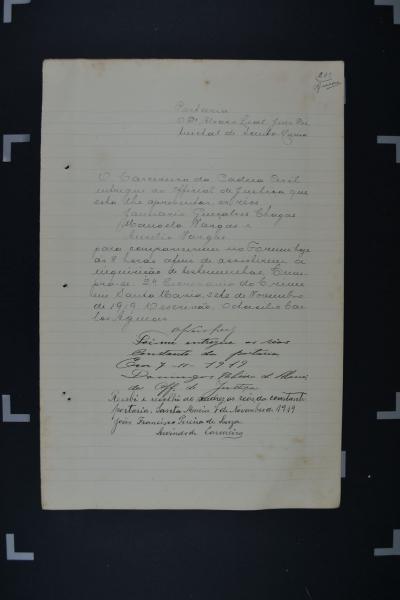 203
Portaria
O Dr Alvaro Leal, Juiz Dis
trictal de Santa Maria
O Carcereiro da Cadeia Civil
entregue ao official de Justiça que
esta lhe apresentar, os réos
Januario Gonçalves Chagas
Manoel Vargas e
Aurelio Vargas
para comparecerem no Forum hoje
ás 8 horas afim de assistirem á
inquirição de testemunhas. Cum
pra-se. 2º Escrivania do Crime
em Santa Maria, sete de Novembro
de 1919. O escrivão, Octacilio Car
los
Foi-me entregue os réos
Constante da portaria
Em 7-11-1919
Domingos
Off. de Justiça
Recebi e recolhi ao xadrez os reos do constante
portaria. Santa Maria 7 de Novembro de 1919
João Francisco Pereira de Souza
Carcereiro